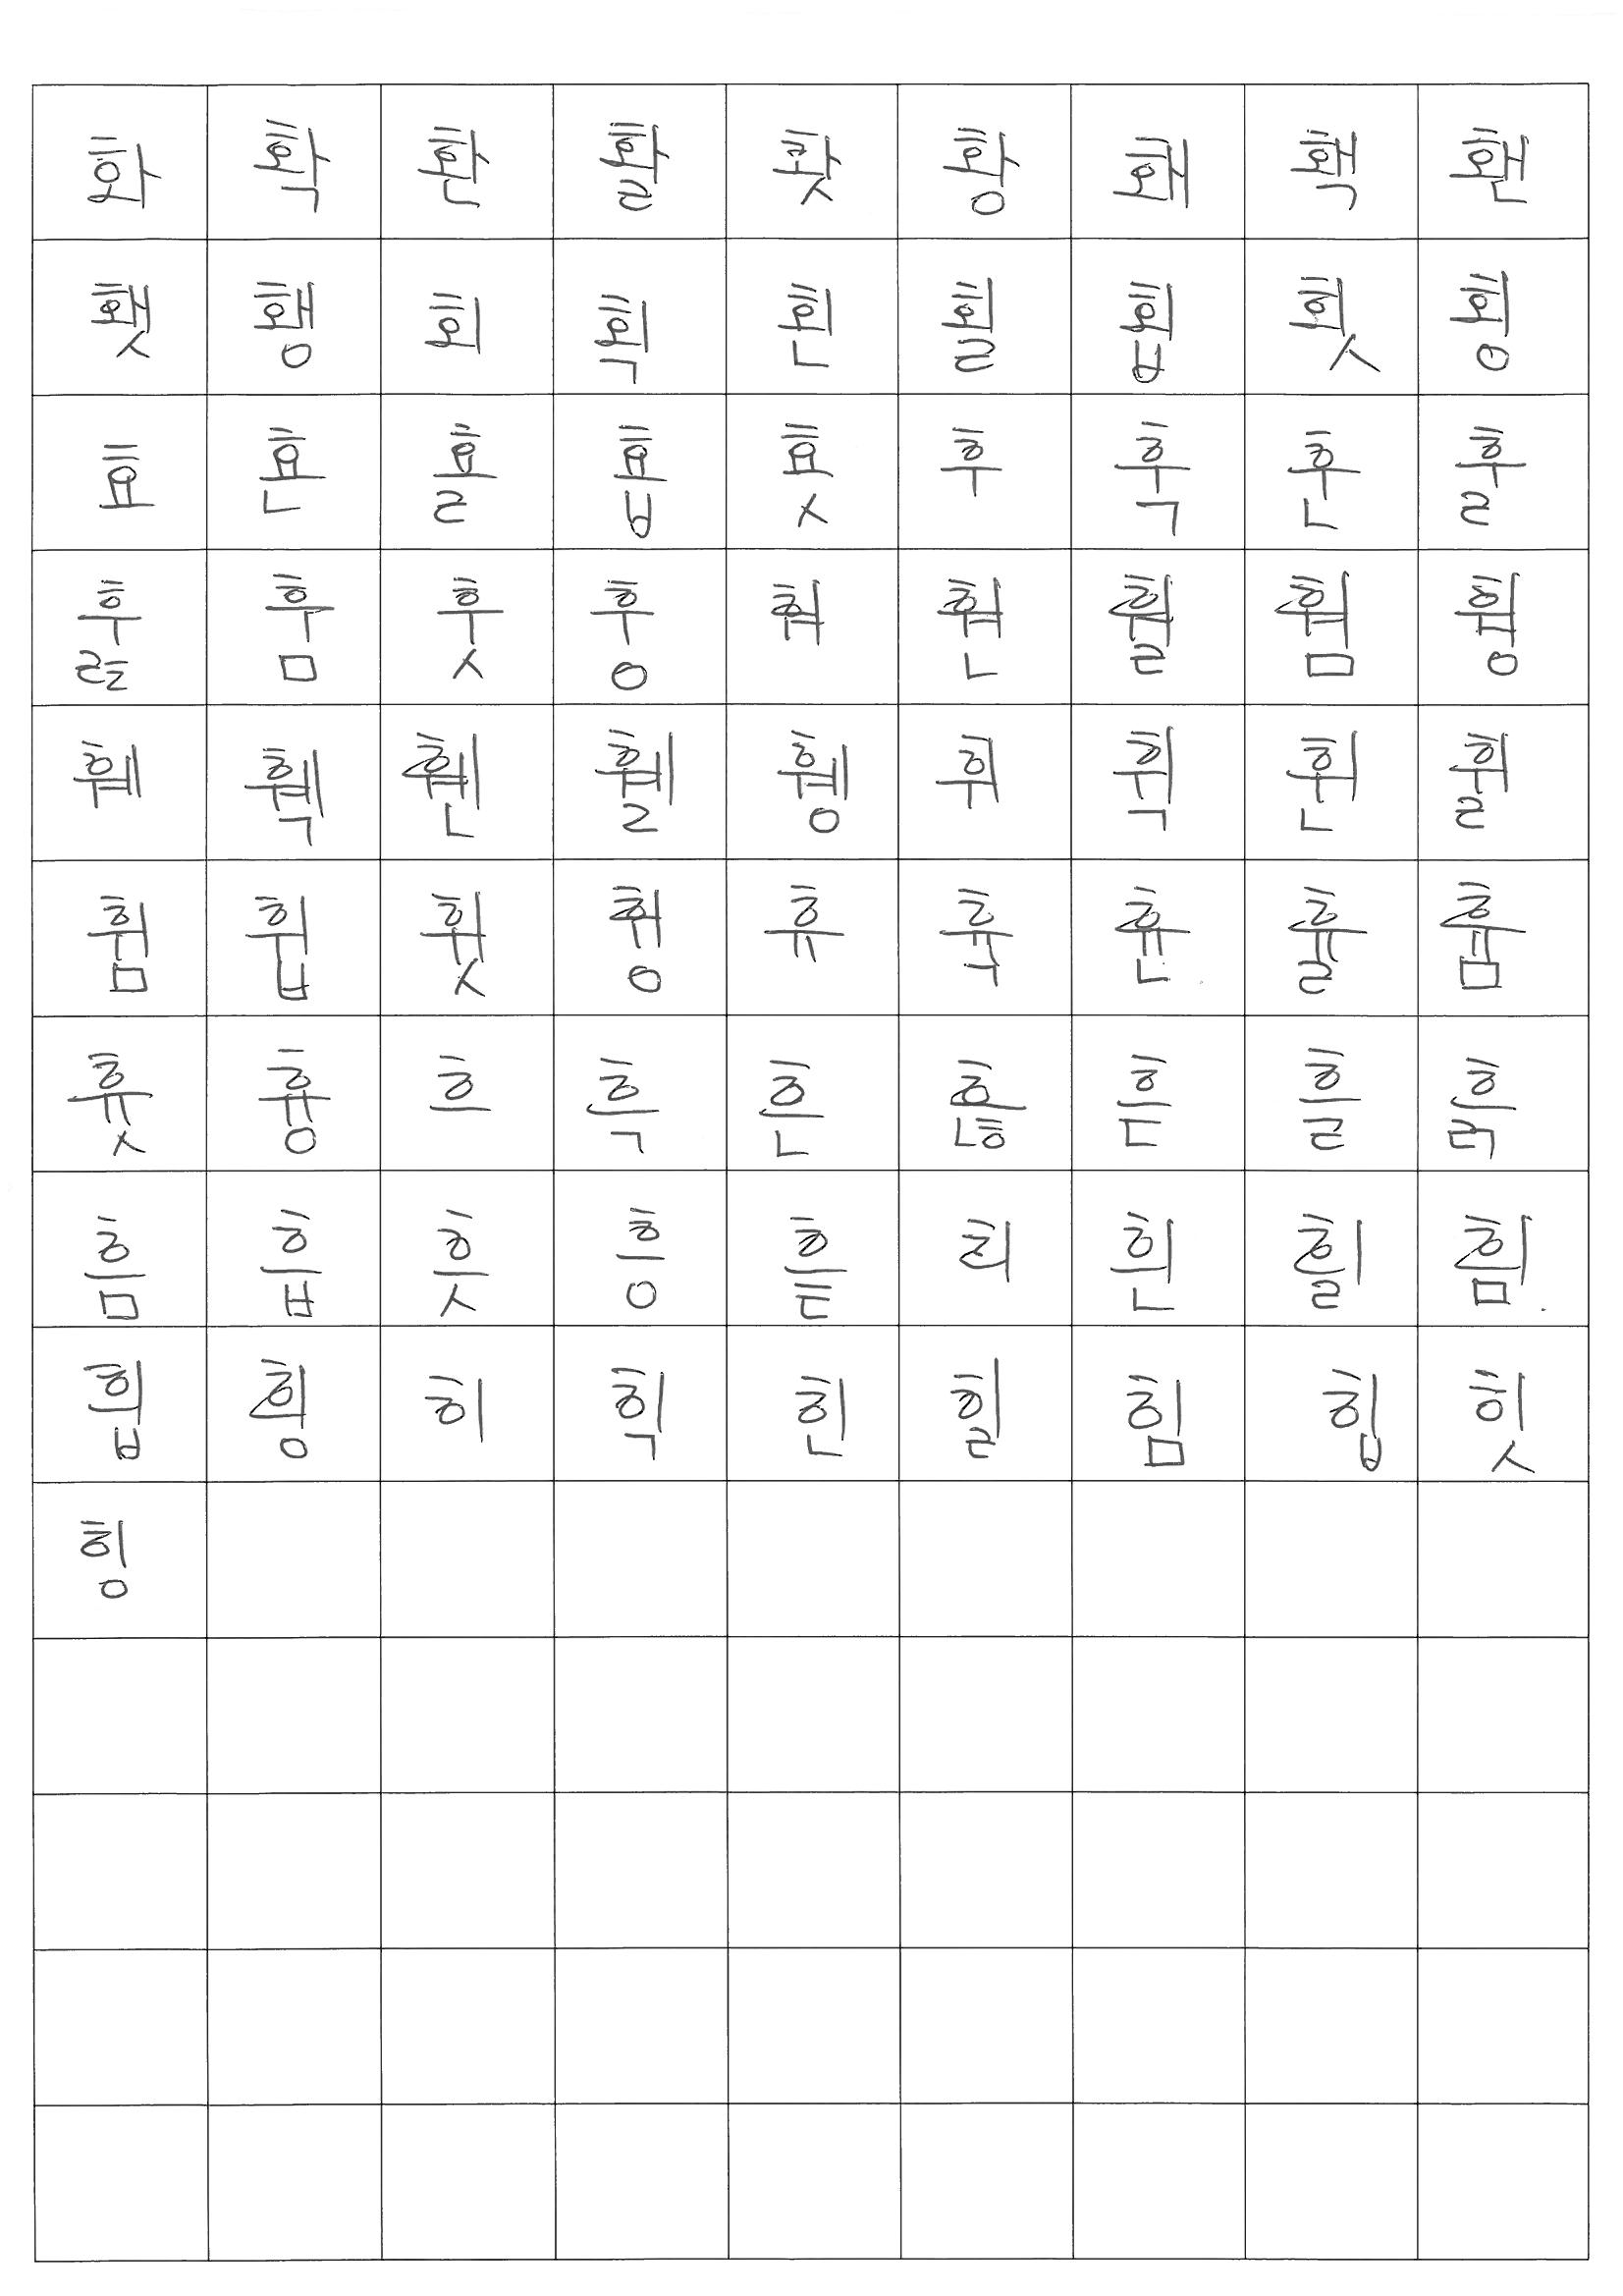 화 확 환 활 홧 황 홰 홱 홴
횃 횅 회 획 횐 횔 횝 횟 횡
효 횬 횰 횹 횻 후 훅 훈 훌
훑 훔 훗 훙 훠 훤 훨 훰 훵
훼 훽 휀 휄 휑 휘 휙 휜 휠
휨 휩 휫 휭 휴 휵 휸 휼 흄
흇 흉 흐 흑 흔 흖 흗 흘 흙
흠 흡 흣 흥 흩 희 흰 흴 흼
흽 힁 히 힉 힌 힐 힘 힙 힛
힝